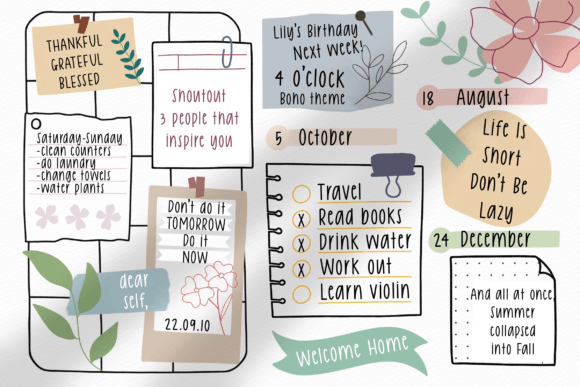 THANKFUL
GRATEFUL
BLESSED
Shoutout
3 people that
inspire you
Saturday-Sunday
-clean counters
-do laundry
-change towels
-water plants
Don't do it
TOMORROW
Do it
NOW
22.09.10
dear
self,
Lily's Birthday
Next Week!
4 O'clock
Boho theme
5 October
Travel
x Read books
x Drink water
x Work out
Learn violin
Welcome Home
18 August
Life Is
Short
Don't Be
Lazy
24 December
And all at once,
summer
collapsed
into Fall